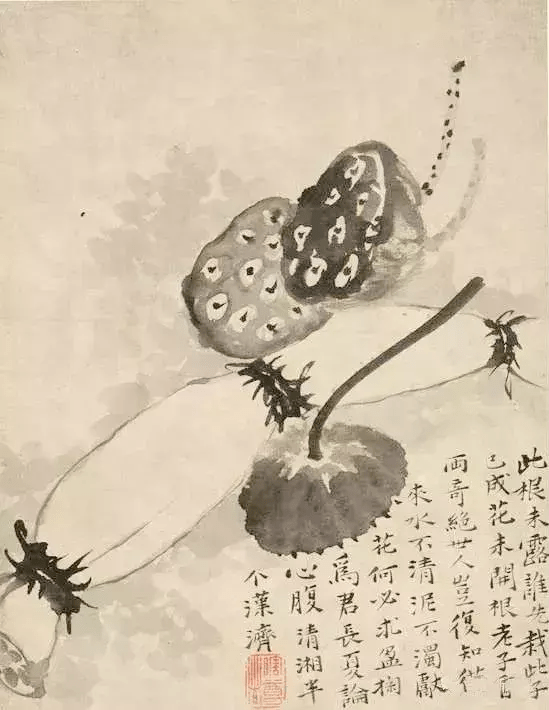 此根未露誰先栽此子
已成花未開根老子香
兩奇絕世人豈復知從
來水不清泥不濁獻
花何必求盈掬
爲君長夏論
心腹清湘半
个漢濟